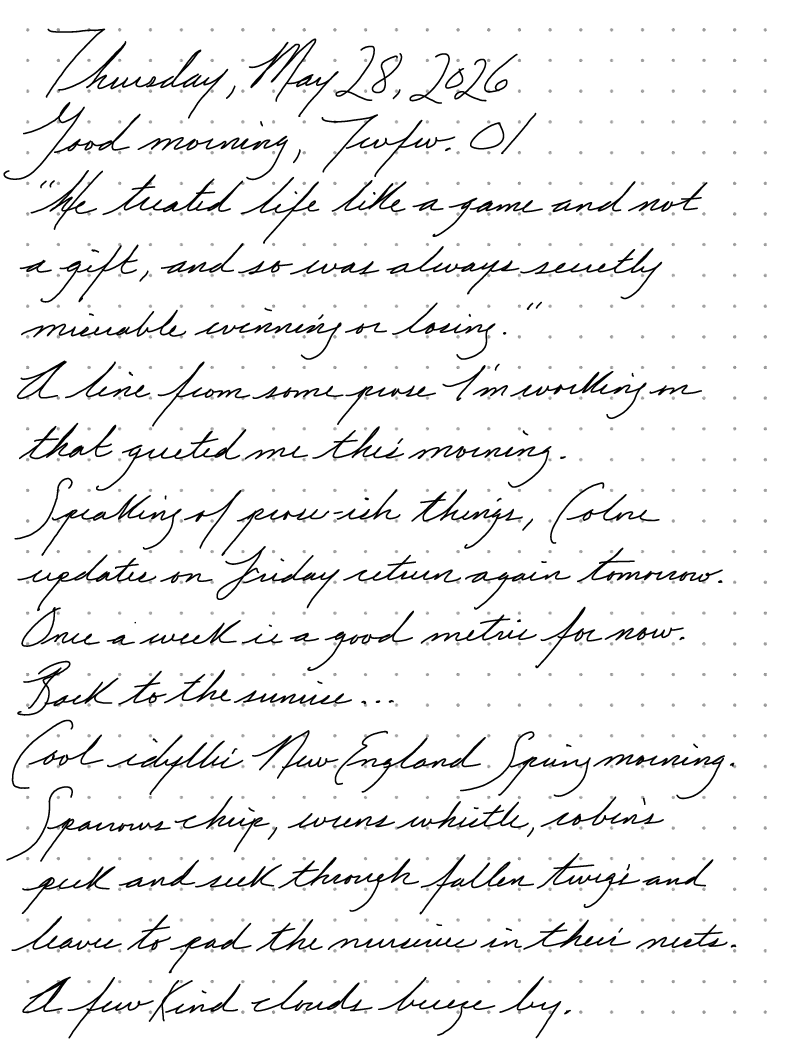 Thursday, May 28, 2026
Good morning, Twfw. 01
"He treated life like a game and not
a gift, and so was always secretly
miserable winning or losing."
A line from some prose I'm working on
that greeted me this morning.
Speaking of prose-ish things, Colne
updates on Friday return again tomorrow.
Once a week is a good metric for now.
Back to the sunrise...
Cool idyllic New England Spring morning.
Sparrows chirp, wrens whistle, robins
peck and seek through fallen twigs and
leaves to pad the nurseries in their nests.
A few kind clouds breeze by.